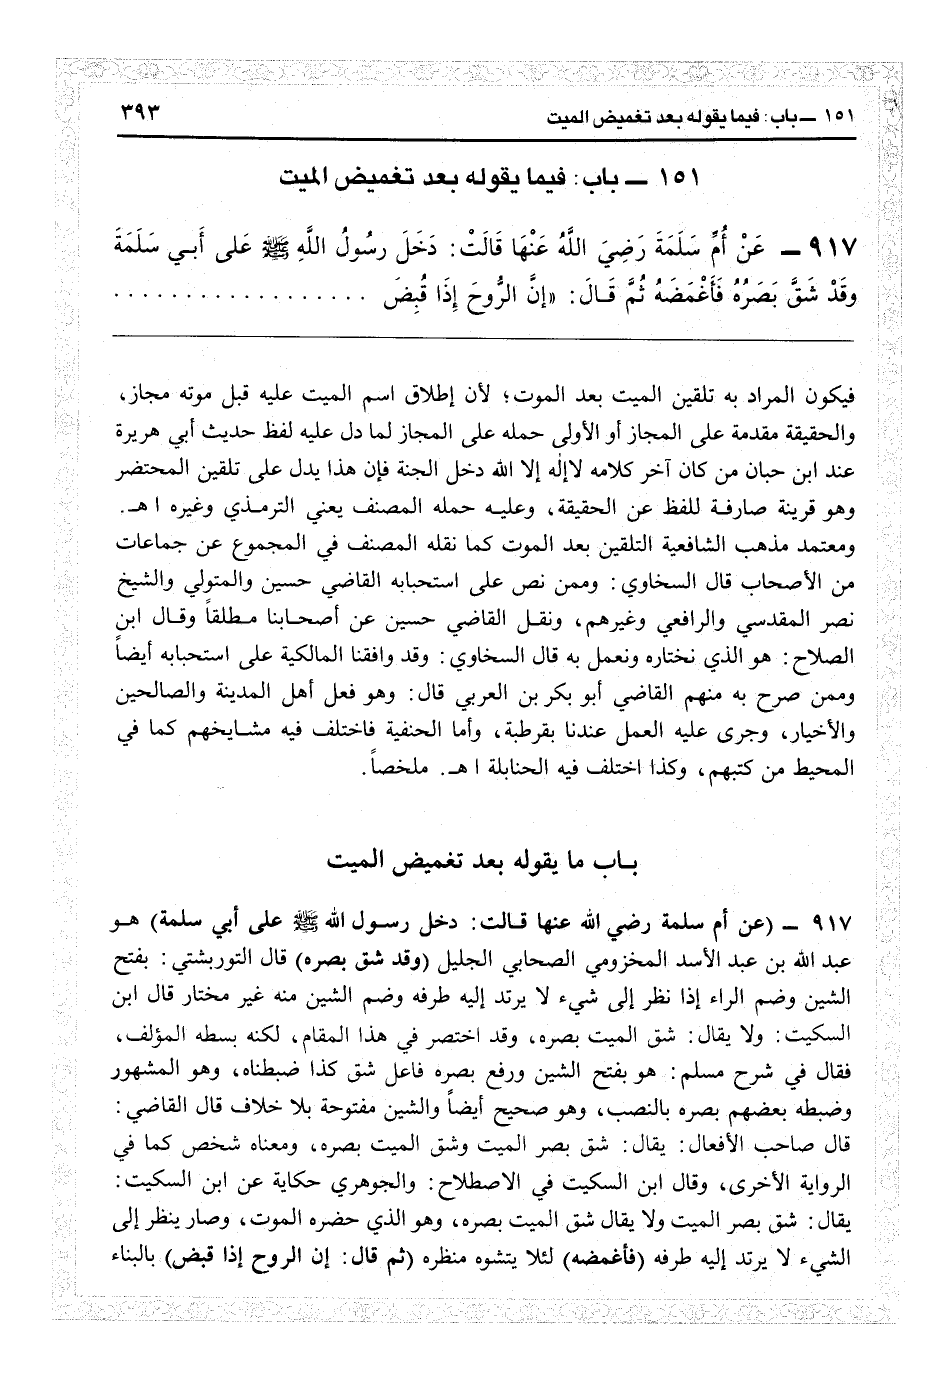 ١٥١ ــ باب: فيما يقوله بعد تغميض الميت ٣٩٣
١٥١ ــ باب: فيما يقوله بعد تغميض الميت
٩١٧ ــ عَنْ أُمِّ سَلَمَةَ رَضِيَ اللَّهُ عَنْهَا قَالَتْ: دَخَلَ رسُولُ اللَّهِ ﷺ عَلى أَبـي سَلَمَةَ
وقَدْ شَقَّ بَصَرُهُ فَأَغْمَضَهُ ثُمَّ قَـالَ: «إنَّ الرُّوحَ إِذَا قُبِضَ ..................
فيكون المراد به تلقين الميت بعد الموت؛ لأن إطلاق اسم الميت عليه قبل موته مجاز،
والحقيقة مقدمة على المجاز أو الأولى حمله على المجاز لما دل عليه لفظ حديث أبي هريرة
عند ابن حبان من كان آخر كلامه لاإلٰه إلا الله دخل الجنة فإن هذا يدل على تلقين المحتضر
وهو قرينة صارفـة للفظ عن الحقيقة، وعليـه حمله المصنف يعني الترمـذي وغيره ا هـ.
ومعتمد مذهب الشافعية التلقين بعد الموت كما نقله المصنف في المجموع عن جماعات
من الأصحاب قال السخاوي: وممن نص على استحبابه القاضي حسين والمتولي والشيخ
نصر المقدسي والرافعي وغيرهم، ونقـل القاضي حسين عن أصحـابنا مـطلقاً وقـال ابن
الصلاح: هو الذي نختاره ونعمل به قال السخاوي: وقد وافقنا المالكية على استحبابه أيضاً
وممن صرح به منهم القاضي أبو بكر بن العربي قال: وهو فعل أهل المدينة والصالحين
والأخيار، وجرى عليه العمل عندنا بقرطبة، وأما الحنفية فاختلف فيه مشـايخهم كما في
المحيط من كتبهم، وكذا اختلف فيه الحنابلة ا هـ. ملخصاً.
بـاب ما يقوله بعد تغميض الميت
٩١٧ ــ (عن أم سلمة رضي الله عنها قـالت: دخل رسـول الله ﷺ على أبي سلمة) هـو
عبد الله بن عبد الأسد المخزومي الصحابي الجليل (وقد شق بصره) قال التوربشتي: بفتح
الشين وضم الراء إذا نظر إلى شيء لا يرتد إليه طرفه وضم الشين منه غير مختار قال ابن
السكيت: ولا يقال: شق الميت بصره، وقد اختصر في هذا المقام، لكنه بسطه المؤلف،
فقال في شرح مسلم: هو بفتح الشين ورفع بصره فاعل شق كذا ضبطناه، وهو المشهور
وضبطه بعضهم بصره بالنصب، وهو صحيح أيضاً والشين مفتوحة بلا خلاف قال القاضي:
قال صاحب الأفعال: يقال: شق بصر الميت وشق الميت بصره، ومعناه شخص كما في
الرواية الأخرى، وقال ابن السكيت في الاصطلاح: والجوهري حكاية عن ابن السكيت:
يقال: شق بصر الميت ولا يقال شق الميت بصره، وهو الذي حضره الموت، وصار ينظر إلى
الشيء لا يرتد إليه طرفه (فأغمضه) لئلا يتشوه منظره (ثم قال: إن الروح إذا قبض) بالبناء